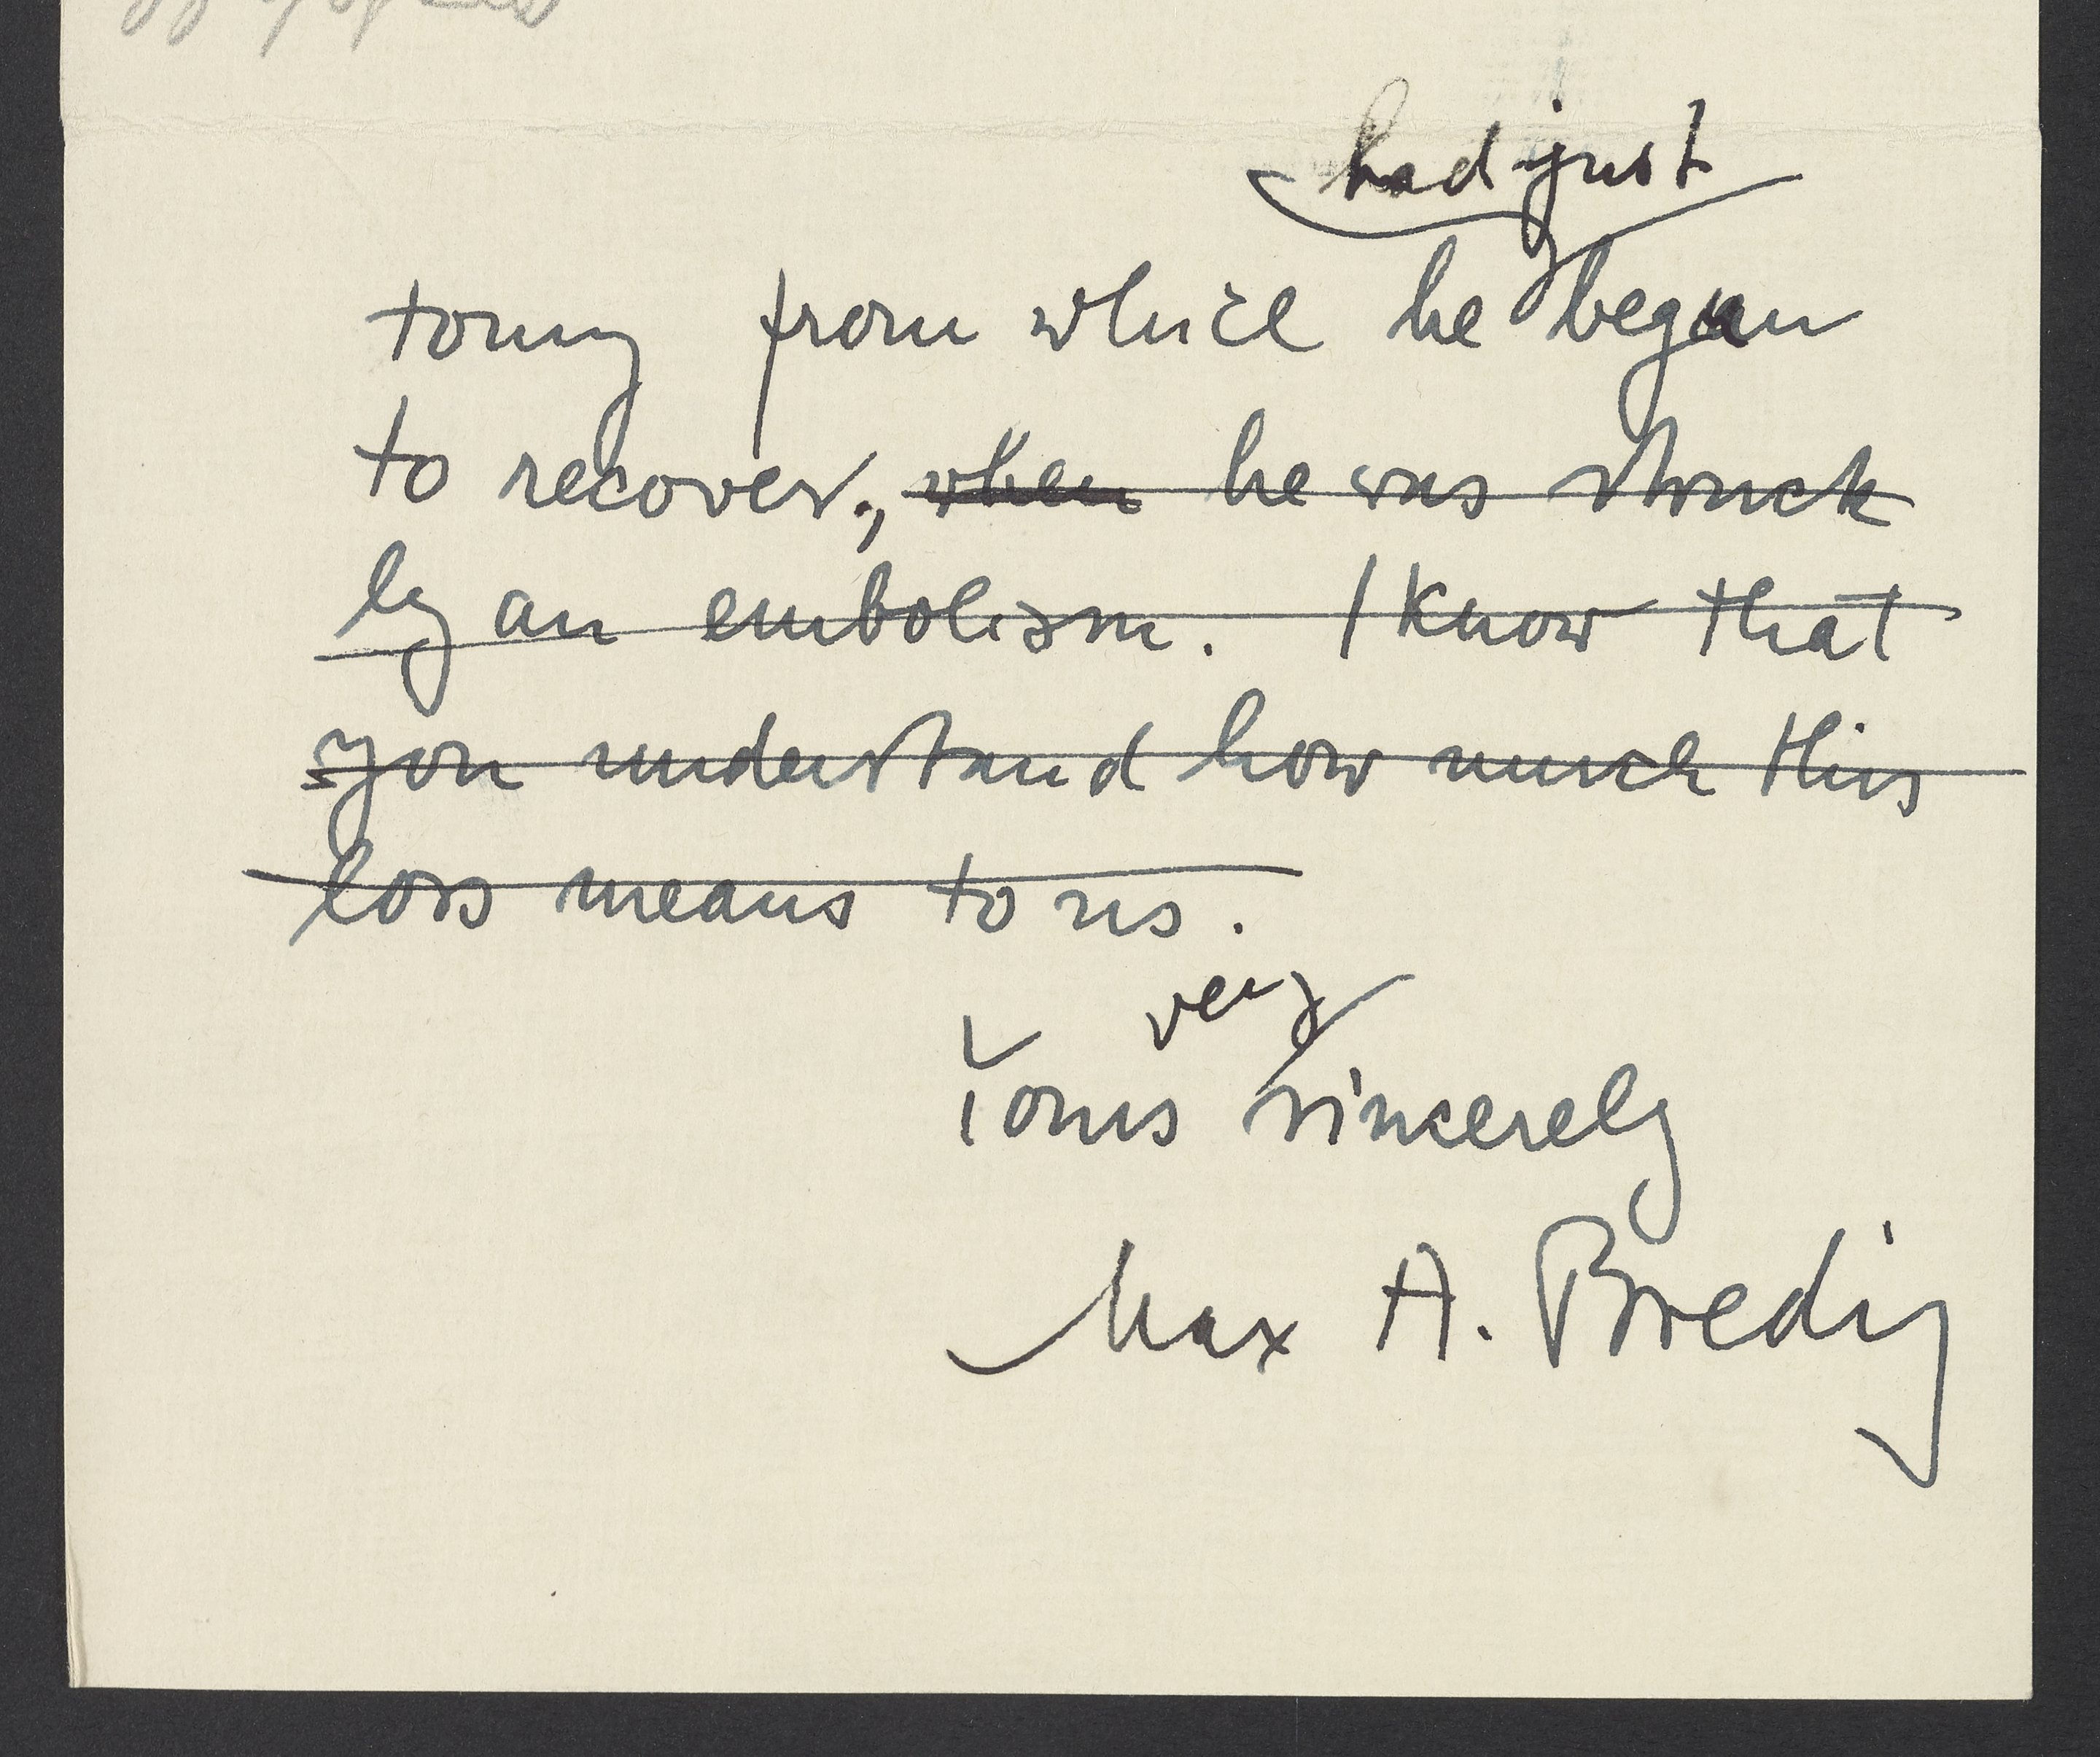 had just
tomy from which he began
to recover., when he was struck
by an embolism. I know that
you understand how much this
loss means to us.
very
Yours sincerely
Max A. Bredig